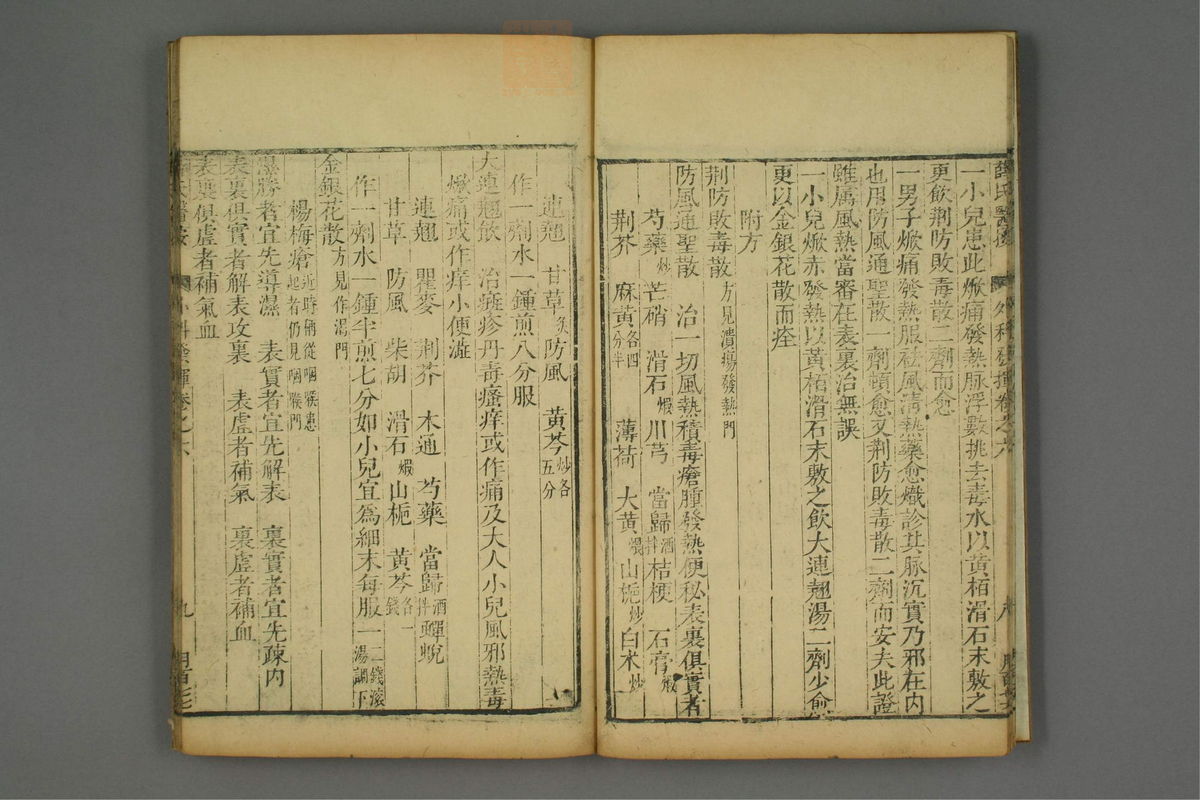 薛氏醫按 外科發揮卷之六 八
一小兒患此焮痛發熱脉浮數挑去毒水以黃栢滑石末敷之
更飲荆防敗毒散二劑而愈
一男子焮痛發熱服祛風清熱藥愈熾診其脉沉實乃邪在內
也用防風通聖散一劑頓愈又荆防敗毒散二劑而安夫此證
雖属風熱當審在表裏治無誤
一小兒焮赤發熱以黃栢滑石末敷之飲大連翹湯二劑少愈
更以金銀花散而痊
附方
荆防敗毒散 方見潰瘍發熱門
防風通聖散 治一切風熱積毒瘡腫發熱便秘表裏俱實者
芍藥炒 芒硝 滑石煅 川芎 當歸酒拌 桔梗 石膏煅
荆芥 麻黃各四分半 薄荷 大黃煨 山梔炒 白朮炒
連翹 甘草炙 防風 黃芩炒各五分
作一劑水一鍾煎八分服
大連翹飲 治癍疹丹毒瘙痒或作痛及大人小兒風邪熱毒
焮痛或作痒小便澁
連翹 瞿麥 荆芥 木通 芍藥 當歸酒拌 蟬蛻
甘草 防風 柴胡 滑石煅 山梔 黃芩各一錢
作一劑水一鍾半煎七分如小兒宜爲細末每服一二錢滚湯調下
金銀花散 方見作渴門
楊梅瘡 近時稱從咽喉患起者仍見咽喉門
濕勝者宜先導濕 表實者宜先解表 裏實者宜先疎內
表裏俱實者解表攻裏 表虚者補氣 裏虚者補血
表裏俱虚者補氣血
薛氏醫按 外科發揮卷之六 九